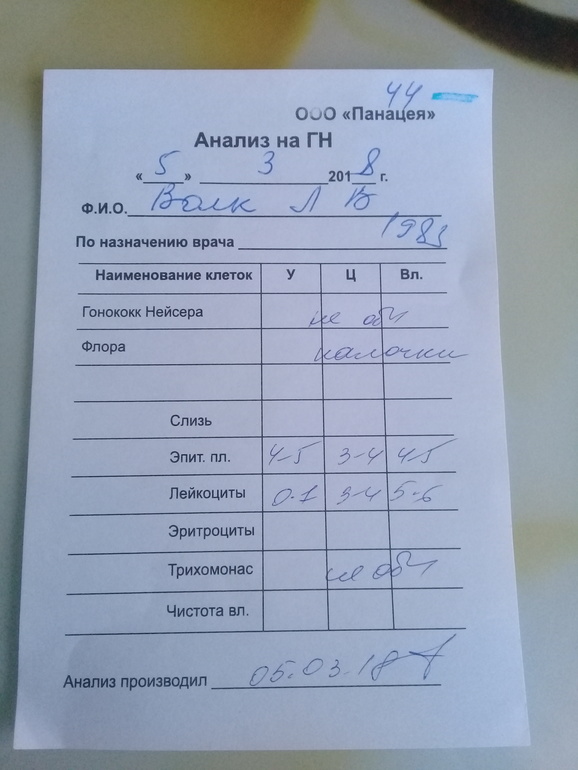 44
ООО «Панацея»
Анализ на ГН
« 5 » 3 2018 г.
Ф.И.О. Волк Л В
По назначению врача
Наименование клеток У Ц Вл.
Гонококк Нейсера не обн
Флора палочки
Слизь
Эпит. пл. 4-5 3-4 4-5
Лейкоциты 0-1 3-4 5-6
Эритроциты
Трихомонас не обн
Чистота вл.
Анализ производил 05.03.18